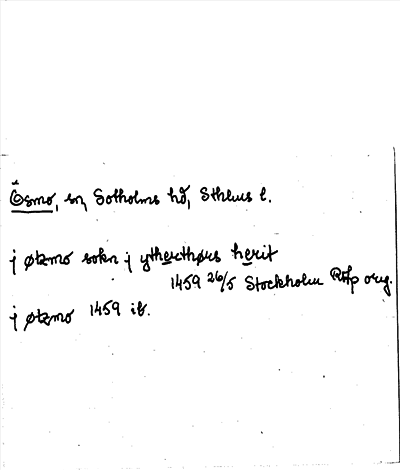 Ösmo, sn, Sotholms hd, Sthlms l.
j øtzmo sokn j ytherthørs herit
1459 26/5 Stockholm RAp orig.
j øtzmo 1459 ib.